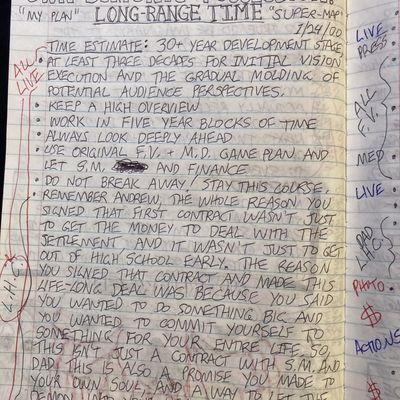 "MY PLAN" LONG-RANGE TIME "SUPER-MAP"
1/24/00
TIME ESTIMATE: 30+ YEAR DEVELOPMENT STAGE,
AT LEAST THREE DECADES FOR INITIAL VISION
EXECUTION AND THE GRADUAL MOLDING OF
POTENTIAL AUDIENCE PERSPECTIVES.
• KEEP A HIGH OVERVIEW
• WORK IN FIVE YEAR BLOCKS OF TIME
• ALWAYS LOOK DEEPLY AHEAD
• USE ORIGINAL F.V. + M.D. GAME PLAN AND
LET S.M. AND FINANCE
• DO NOT BREAK AWAY! STAY THIS COURSE.
• REMEMBER ANDREW, THE WHOLE REASON YOU
SIGNED THAT FIRST CONTRACT WASN'T JUST
TO GET THE MONEY TO DEAL WITH THE
SETTLEMENT, AND IT WASN'T JUST TO GET
OUT OF HIGH SCHOOL EARLY. THE REASON
YOU SIGNED THAT CONTRACT AND MADE THIS
LIFE-LONG DEAL WAS BECAUSE YOU SAID
YOU WANTED TO DO SOMETHING BIG AND
YOU WANTED TO COMMIT YOURSELF TO
SOMETHING FOR YOUR ENTIRE LIFE. SO,
THIS ISN'T JUST A CONTRACT WITH S.M. AND
DAD, THIS IS ALSO A PROMISE YOU MADE TO
YOUR OWN SOUL, AND A WAY TO LET THE
DEMON
ALL
LIVE
LIVE
PRESS
ALL
F.V.
MED
LIVE
DAD
PHOTO
$
ACTIONS
$